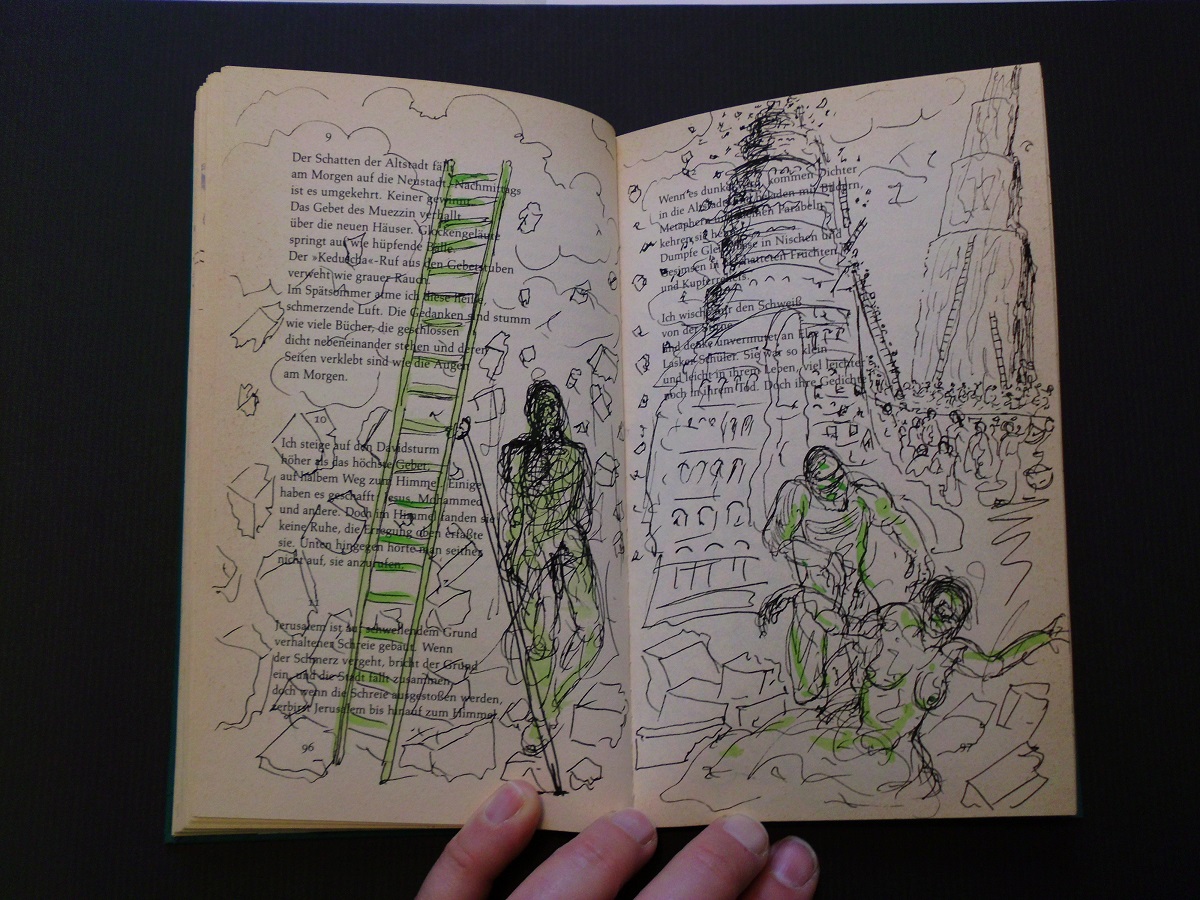 9
Der Schatten der Altstadt fällt
am Morgen auf die Neustadt. Nachmittags
ist es umgekehrt. Keiner gewinnt.
Das Gebet des Muezzin verhallt
über die neuen Häuser. Glockengeläute
springt auf wie hüpfende Bälle.
Der »Keduscha«-Ruf aus den Gebetstuben
verweht wie grauer Rauch.
Im Spätsommer atme ich diese heiße,
schmerzende Luft. Die Gedanken sind stumm
wie viele Bücher, die geschlossen
dicht nebeneinander stehen und deren
Seiten verklebt sind wie die Augen
am Morgen.
10
Ich steige auf den Davidsturm
höher als das höchste Gebet,
auf halbem Weg zum Himmel. Einige
haben es geschafft: Jesus, Mohammed
und andere. Doch im Himmel fanden sie
keine Ruhe, die Erregung oben erfaßte
sie. Unten hingegen hörte man seither
nicht auf, sie anzurufen.
11
Jerusalem ist auf schwellendem Grund
verhaltener Schreie gebaut. Wenn
der Schmerz vergeht, bricht der Grund
ein, und die Stadt fällt zusammen,
doch wenn die Schreie ausgestoßen werden,
zerbirst Jerusalem bis hinauf zum Himmel.
96
Wenn es dunkel wird, kommen Dichter
in die Altstadt, und beladen mit Bildern,
Metaphern und kleinen Parabeln
kehren sie
Dumpfe Gleichnisse in Nischen und
Gesimsen in beschatteten Früchten
und Kupferreifen.
Ich wische mir den Schweiß
von der Stirne
und denke unvermutet an Else
Lasker-Schüler. Sie war so klein
und leicht in ihrem Leben, viel leichter
noch in ihrem Tod. Doch ihre Gedichte
97